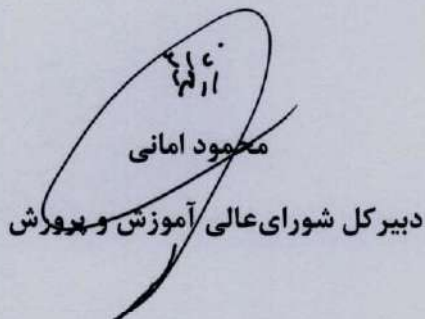 محمود امانی
دبیرکل شورای‌عالی آموزش و پرورش